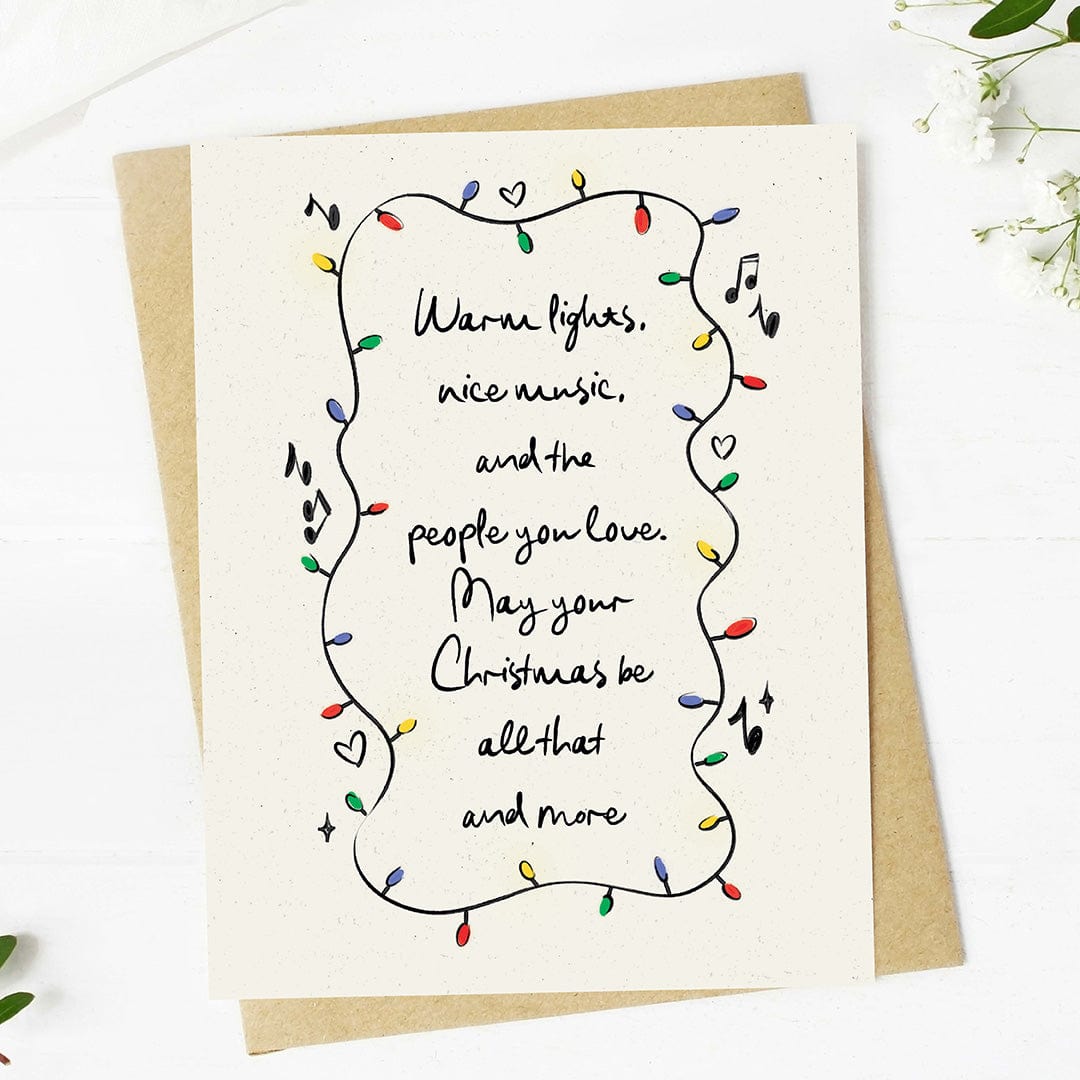 Warm lights,
nice music,
and the
people you love.
May your
Christmas be
all that
and more